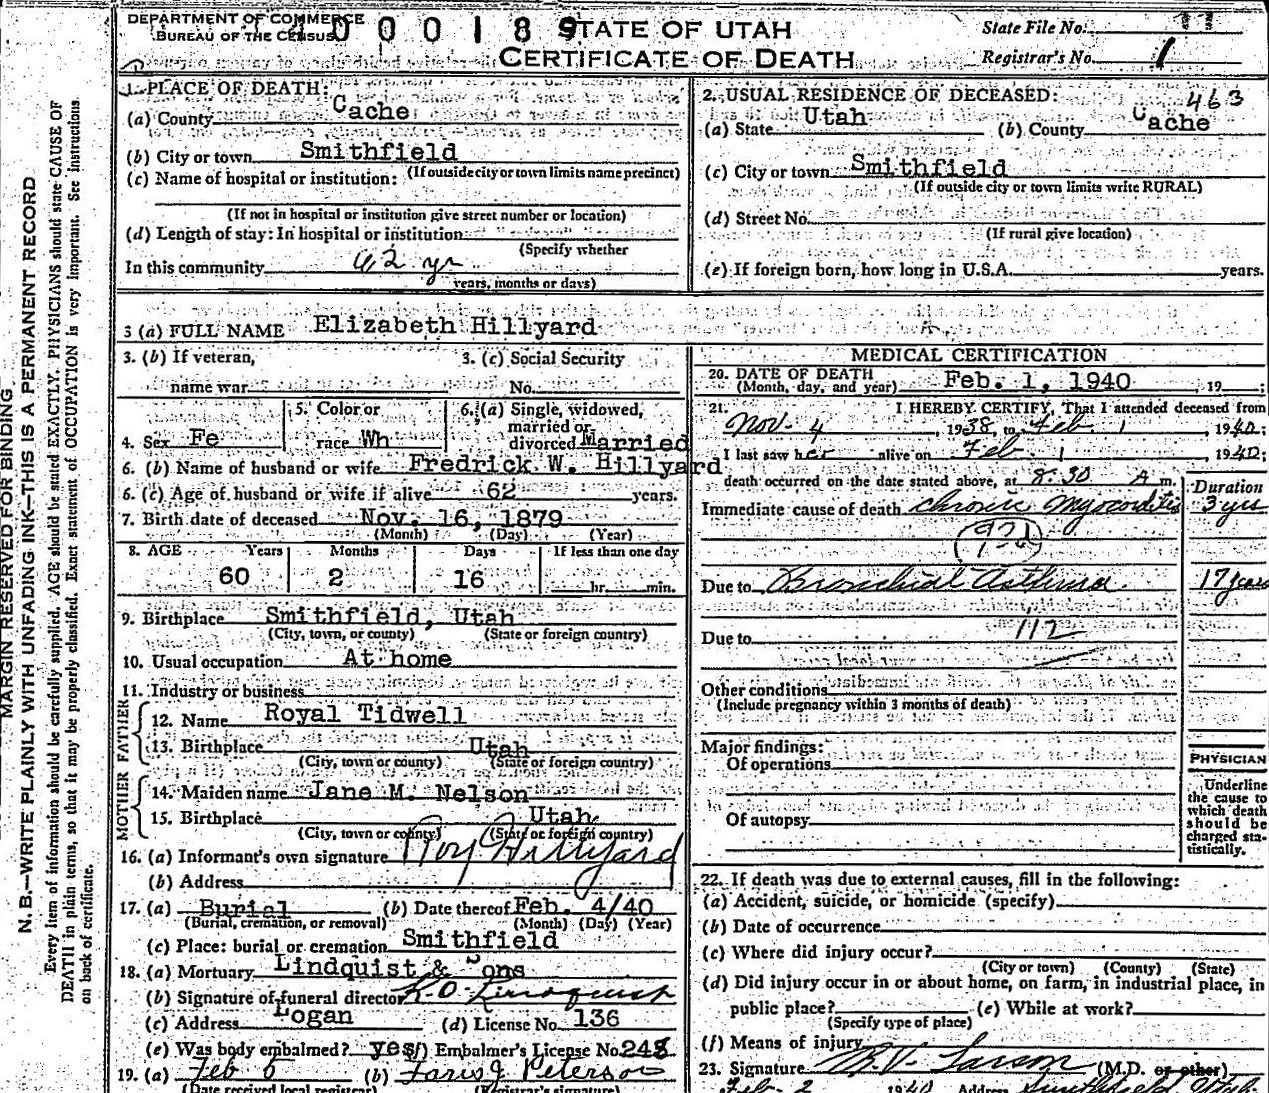 DEPARTMENT OF COMMERCE
BUREAU OF THE CENSUS
4000189
STATE OF UTAH
CERTIFICATE OF DEATH
State File No. 11
Registrar's No. 1
MARGIN RESERVED FOR BINDING
N. B.—WRITE PLAINLY WITH UNFADING INK—THIS IS A PERMANENT RECORD
Every item of information should be carefully supplied. AGE should be stated EXACTLY. PHYSICIANS should state CAUSE OF
DEATH in plain terms, so that it may be properly classified. Exact statement of OCCUPATION is very important. See instructions
on back of certificate.
1. PLACE OF DEATH:
(a) County Cache
(b) City or town Smithfield
(If outside city or town limits name precinct)
(c) Name of hospital or institution:
(If not in hospital or institution give street number or location)
(d) Length of stay: In hospital or institution
(Specify whether
In this community 62 yr
years, months or days)
2. USUAL RESIDENCE OF DECEASED: 463
(a) State Utah (b) County Cache
(c) City or town Smithfield
(If outside city or town limits write RURAL)
(d) Street No.
(If rural give location)
(e) If foreign born, how long in U.S.A. years.
3 (a) FULL NAME Elizabeth Hillyard
3. (b) If veteran, 3. (c) Social Security
name war No.
4. Sex Fe
5. Color or
race Wh
6. (a) Single, widowed,
married or
divorced Married
6. (b) Name of husband or wife Fredrick W. Hillyard
6. (c) Age of husband or wife if alive 62 years.
7. Birth date of deceased Nov. 16, 1879
(Month) (Day) (Year)
8. AGE Years Months Days If less than one day
60 2 16 hr. min.
9. Birthplace Smithfield, Utah
(City, town, or county) (State or foreign country)
10. Usual occupation At home
11. Industry or business
FATHER
12. Name Royal Tidwell
13. Birthplace Utah
(City, town or county) (State or foreign country)
MOTHER
14. Maiden name Jane M. Nelson
15. Birthplace Utah
(City, town or county) (State or foreign country)
16. (a) Informant's own signature Roy Hillyard
(b) Address
17. (a) Burial (b) Date thereof Feb. 4/40
(Burial, cremation, or removal) (Month) (Day) (Year)
(c) Place: burial or cremation Smithfield
18. (a) Mortuary Lindquist & Sons
(b) Signature of funeral director R. O. Lindquist
(c) Address Logan (d) License No. 136
(e) Was body embalmed? yes (f) Embalmer's License No. 248
19. (a) Feb 6 (b) Faris J Peterson
(Date received local registrar) (Registrar's signature)
MEDICAL CERTIFICATION
20. DATE OF DEATH
(Month, day, and year) Feb. 1, 1940 , 19 ;
21. I HEREBY CERTIFY, That I attended deceased from
Nov- 4 , 1938 to Feb 1 , 1940;
I last saw her alive on Feb. 1 1940;
death occurred on the date stated above, at 8:30 A m.
Duration
Immediate cause of death chronic Myocarditis 3 yrs
Due to Bronchial Asthma 17 years
112
Due to
Other conditions
(Include pregnancy within 3 months of death)
Major findings:
Of operations
Of autopsy
PHYSICIAN
Underline
the cause to
which death
should be
charged sta-
tistically.
22. If death was due to external causes, fill in the following:
(a) Accident, suicide, or homicide (specify)
(b) Date of occurrence
(c) Where did injury occur?
(City or town) (County) (State)
(d) Did injury occur in or about home, on farm, in industrial place, in
public place? (e) While at work?
(Specify type of place)
(f) Means of injury
23. Signature R. V. Larson (M.D. or other)
Feb- 2 1940 Address Smithfield, Utah